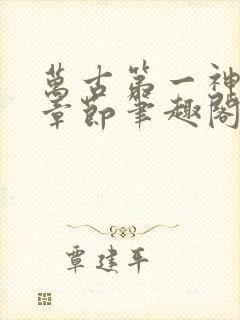 萬古第一神
章節筆趣閣
覃建平